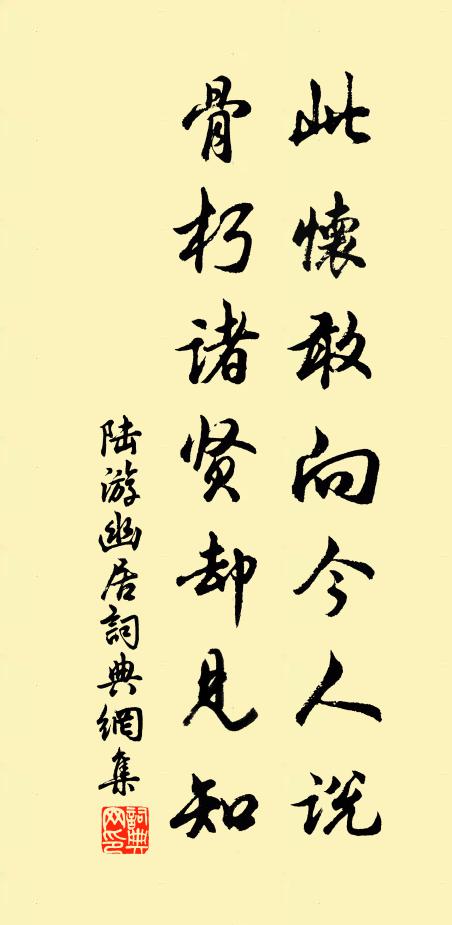 此懷敢向今人说
骨朽诸贤却見知
陆游幽居詞典網集
詞典网印